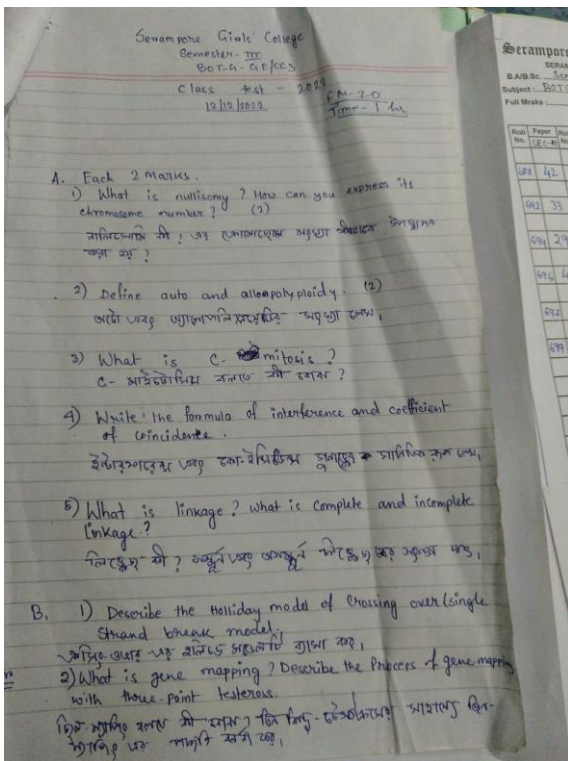 Serampore Girls' College
Semester - III
BOT-G-GE/CC3
Class test - 2022
12/12/2022
FM-20
Time - 1 hr
A. Each 2 marks.
1) What is nullisomy? How can you express its
chromosome number? (2)
নালিসোমি কী? এর ক্রোমোজোম সংখ্যা কীভাবে
করা হয়?
2) Define auto and allopolyploidy. (2)
অটো এবং অ্যালোপলিপ্লয়েডির সংজ্ঞা লেখ।
3) What is C- mitosis?
C- মাইটোসিস বলতে কী বোঝ?
4) Write the formula of interference and coefficient
of coincidence.
ইন্টারফারেন্স এবং কো-ইন্সিডেন্স গুণাঙ্কের গাণিতিক রূপ লেখ।
5) What is linkage? what is complete and incomplete
linkage?
লিঙ্কেজ কী? সম্পূর্ণ এবং অসম্পূর্ণ লিঙ্কেজ এর সংজ্ঞা দাও।
B. 1) Describe the Holliday model of crossing over (single
strand break model).
ক্রসিং ওভার এর হলিডে মডেলটি ব্যাখ্যা কর।
2) What is gene mapping? Describe the Process of gene-mapping
with three-point testcross.
জিন-ম্যাপিং বলতে কী বোঝ? তিন বিন্দু-টেস্টক্রসের সাহায্যে জিন-
ম্যাপিং এর পদ্ধতি বর্ণনা কর।
Serampore
B.A/B.Sc.
Subject: BOT
Full Mraks:
Roll No. Paper
SEC-A
688 42
692 33
694 29
696
697
699